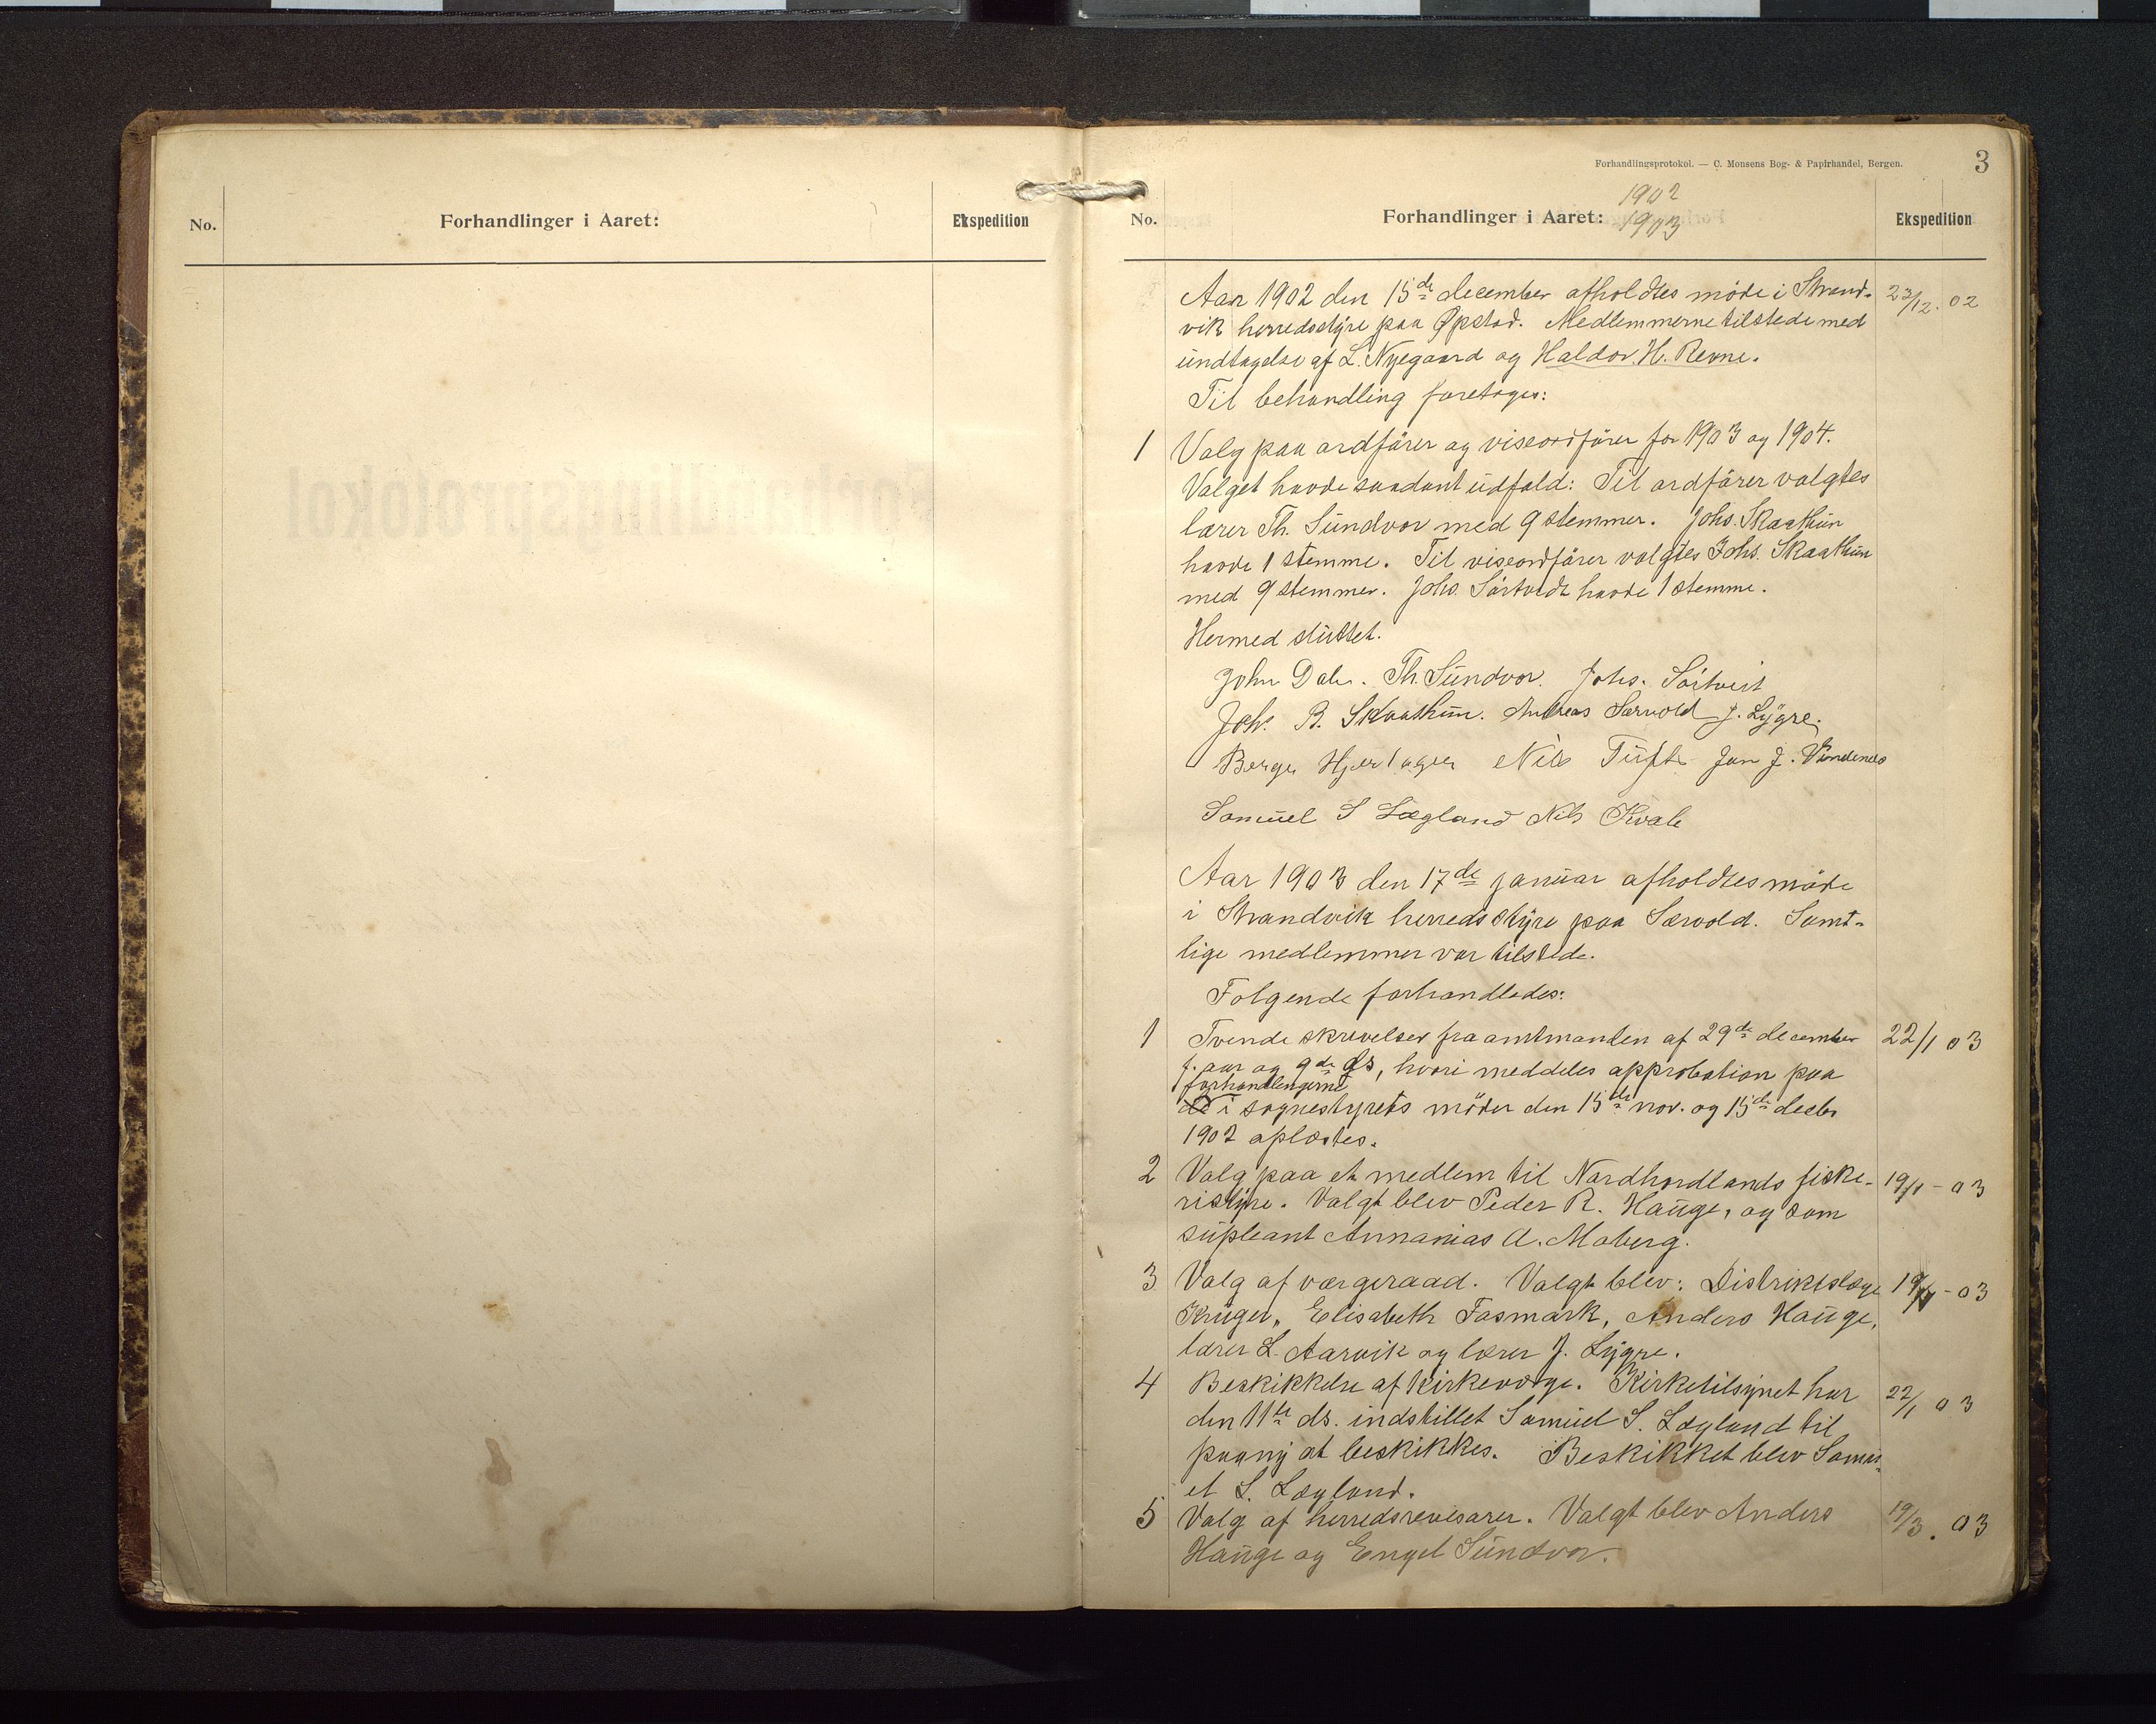 No.
Forhandlinger i Aaret:
Ekspedition
Forhandlingsprotokol. — C. Monsens Bog- & Papirhandel, Bergen.
3
No.
Forhandlinger i Aaret: 1902
1903
Ekspedition
Aar 1902 den 15de december afholdtes möde i Strand- 23/12. 02
vik herredstyre paa Opstad. Medlemmerne tilstede med
undtagelse af L. Nyegaard og Haldor H. Revne.
Til behandling foretoges:
1 Valg paa ordförer og viseordförer for 1903 og 1904.
Valget havde saadant udfald: Til ordförer valgtes
lærer Th. Sundvor med 9 stemmer. Johs. Skaathun
havde 1 stemme. Til viseordförer valgtes Johs. Skaathun
med 9 stemmer. Johs. Sörtvedt havde 1 stemme.
Hermed sluttet.
John Dale. Th. Sundvor. Johs. Sörtveit
Johs. B. Skaathun. Andreas Særvold J. Lygre.
Berge Hjertager Nils Tufte Jan J. Vindenes
Samuel S Lægland Nils Kvale
Aar 1903 den 17de januar afholdtes möde
i Strandvik herredstyre paa Særvold. Samt-
lige medlemmer var tilstede.
Folgende forhandledes:
1 Tvende skrivelser fra amtmanden af 29de december 22/1 03
f. aar og 9de ds, hvori meddeles approbation paa
forhandlingerne
i sognestyrets möder den 15de nov. og 15de decbr
1902 oplæstes.
2 Valg paa et medlem til Nordhordlands fiske- 19/1 - 03
ristyre. Valgt blev Peder R. Hauge, og som
supleant Annanias A. Moberg.
3 Valg af værgeraad. Valgt blev: Distriktslæge 19/1 - 03
Krüger, Elisabeth Fasmark, Anders Hauge,
lærer L. Aarvik og lærer J. Lygre.
4 Beskikkelse af kirkeværge. Kirketilsynet har 22/1 03
den 11te ds. indstillet Samuel S. Lægland til
paany at beskikkes. Beskikket blev Samu-
el S. Lægland.
5 Valg af herredsrevisorer. Valgt blev Anders 19/3. 03
Hauge og Engel Sundvor.